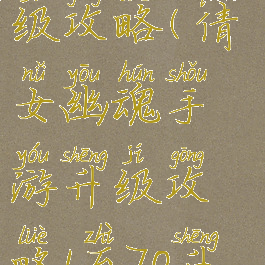 级攻略(倩
nǚ yōu hún shǒu
女幽魂手
yóu shēng jí gōng
游升级攻
lüè zhì shēng
略(至70升